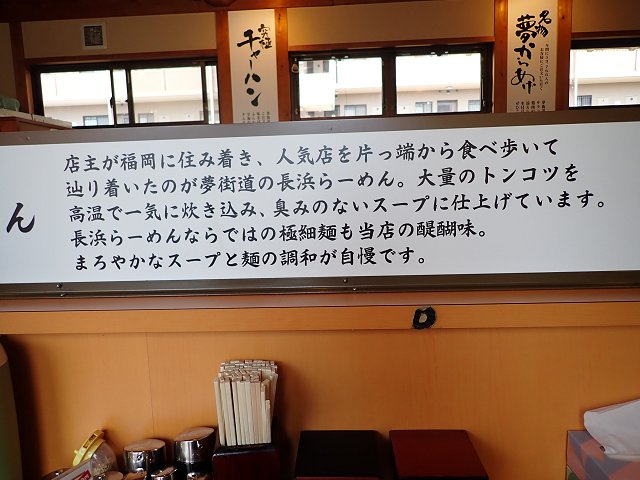 究極
チャーハン
名物
夢からあげ
店主が福岡に住み着き、人気店を片っ端から食べ歩いて
辿り着いたのが夢街道の長浜らーめん。大量のトンコツを
高温で一気に炊き込み、臭みのないスープに仕上げています。
長浜らーめんならではの極細麺も当店の醍醐味。
まろやかなスープと麺の調和が自慢です。
ん